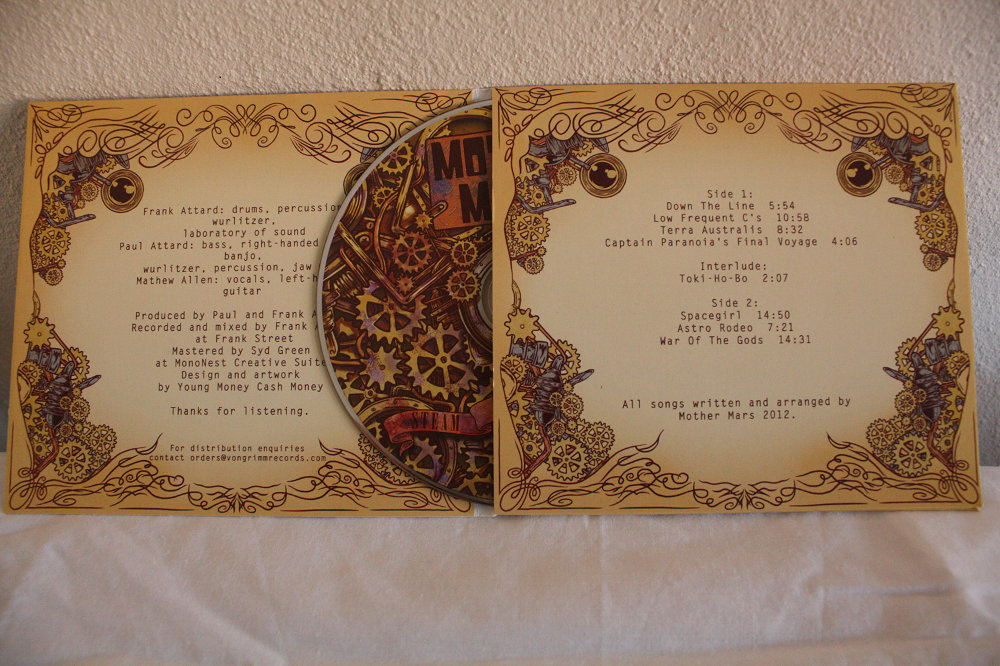 Frank Attard: drums, percussion
wurlitzer,
laboratory of sound
Paul Attard: bass, right-handed
banjo,
wurlitzer, percussion, jaw
Mathew Allen: vocals, left-h
guitar
Produced by Paul and Frank A
Recorded and mixed by Frank A
at Frank Street
Mastered by Syd Green
at MonoNest Creative Suite
Design and artwork
by Young Money Cash Money
Thanks for listening.
For distribution enquiries
contact orders@vongrimmrecords.com
MO
M
STEAM
Side 1:
Down The Line 5:54
Low Frequent C's 10:58
Terra Australis 8:32
Captain Paranoia's Final Voyage 4:06
Interlude:
Toki-Ho-Bo 2:07
Side 2:
Spacegirl 14:50
Astro Rodeo 7:21
War Of The Gods 14:31
All songs written and arranged by
Mother Mars 2012.